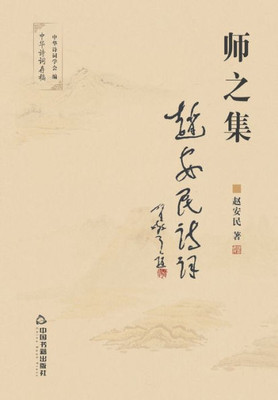 师之集
中华诗词学会 编
中华诗词存稿
赵安民诗词
赵安民 著
中国书籍出版社